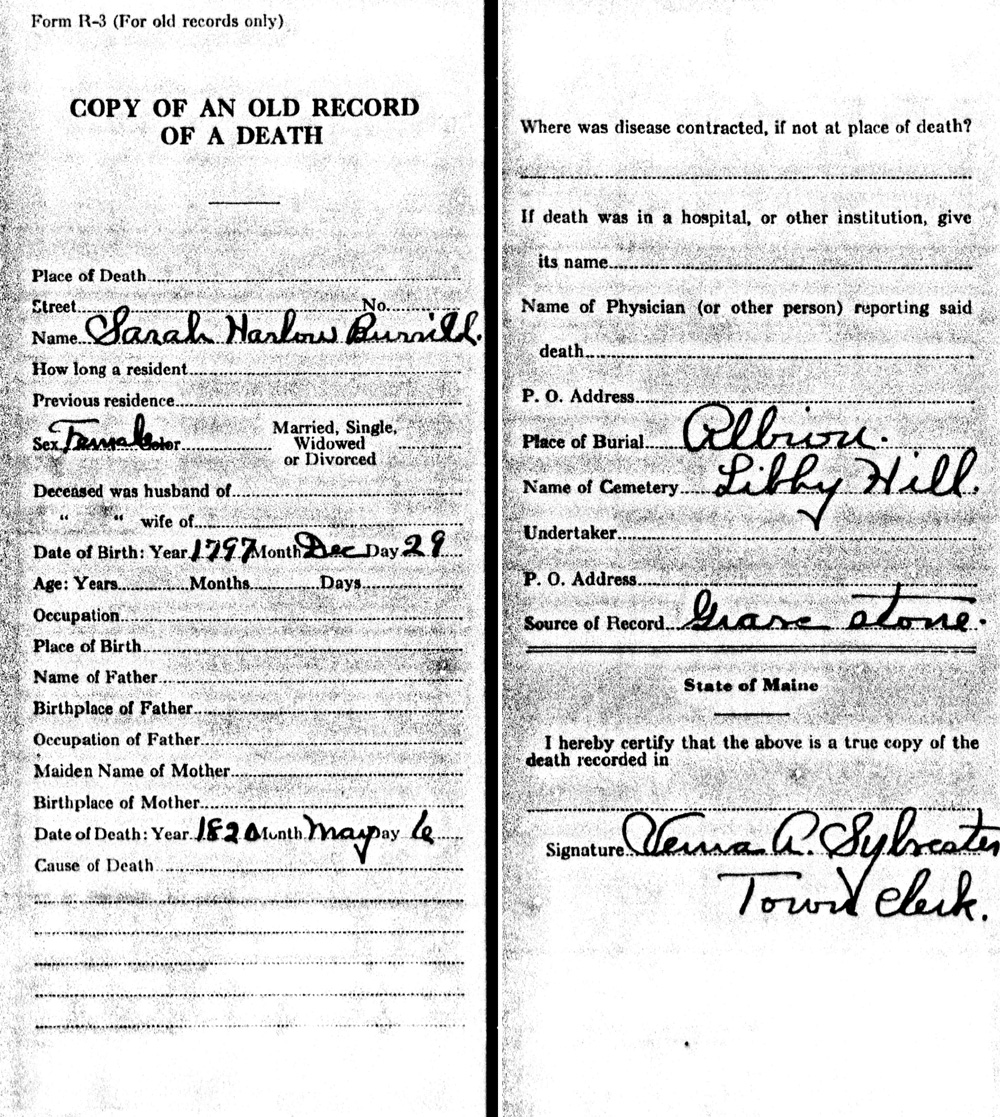 Form R-3 (For old records only)
COPY OF AN OLD RECORD
OF A DEATH
Place of Death
Street No.
Name Sarah Harlow Burrill.
How long a resident
Previous residence
Sex Female Color Married, Single,
Widowed
or Divorced
Deceased was husband of
" " wife of
Date of Birth: Year 1797 Month Dec Day 29
Age: Years Months Days
Occupation
Place of Birth
Name of Father
Birthplace of Father
Occupation of Father
Maiden Name of Mother
Birthplace of Mother
Date of Death: Year 1820 Month May Day 6
Cause of Death
Where was disease contracted, if not at place of death?
If death was in a hospital, or other institution, give
its name
Name of Physician (or other person) reporting said
death
P. O. Address
Place of Burial Albion.
Name of Cemetery Libby Hill.
Undertaker
P. O. Address
Source of Record Grave stone.
State of Maine
I hereby certify that the above is a true copy of the
death recorded in
Signature Verna A. Sylvester
Town Clerk.